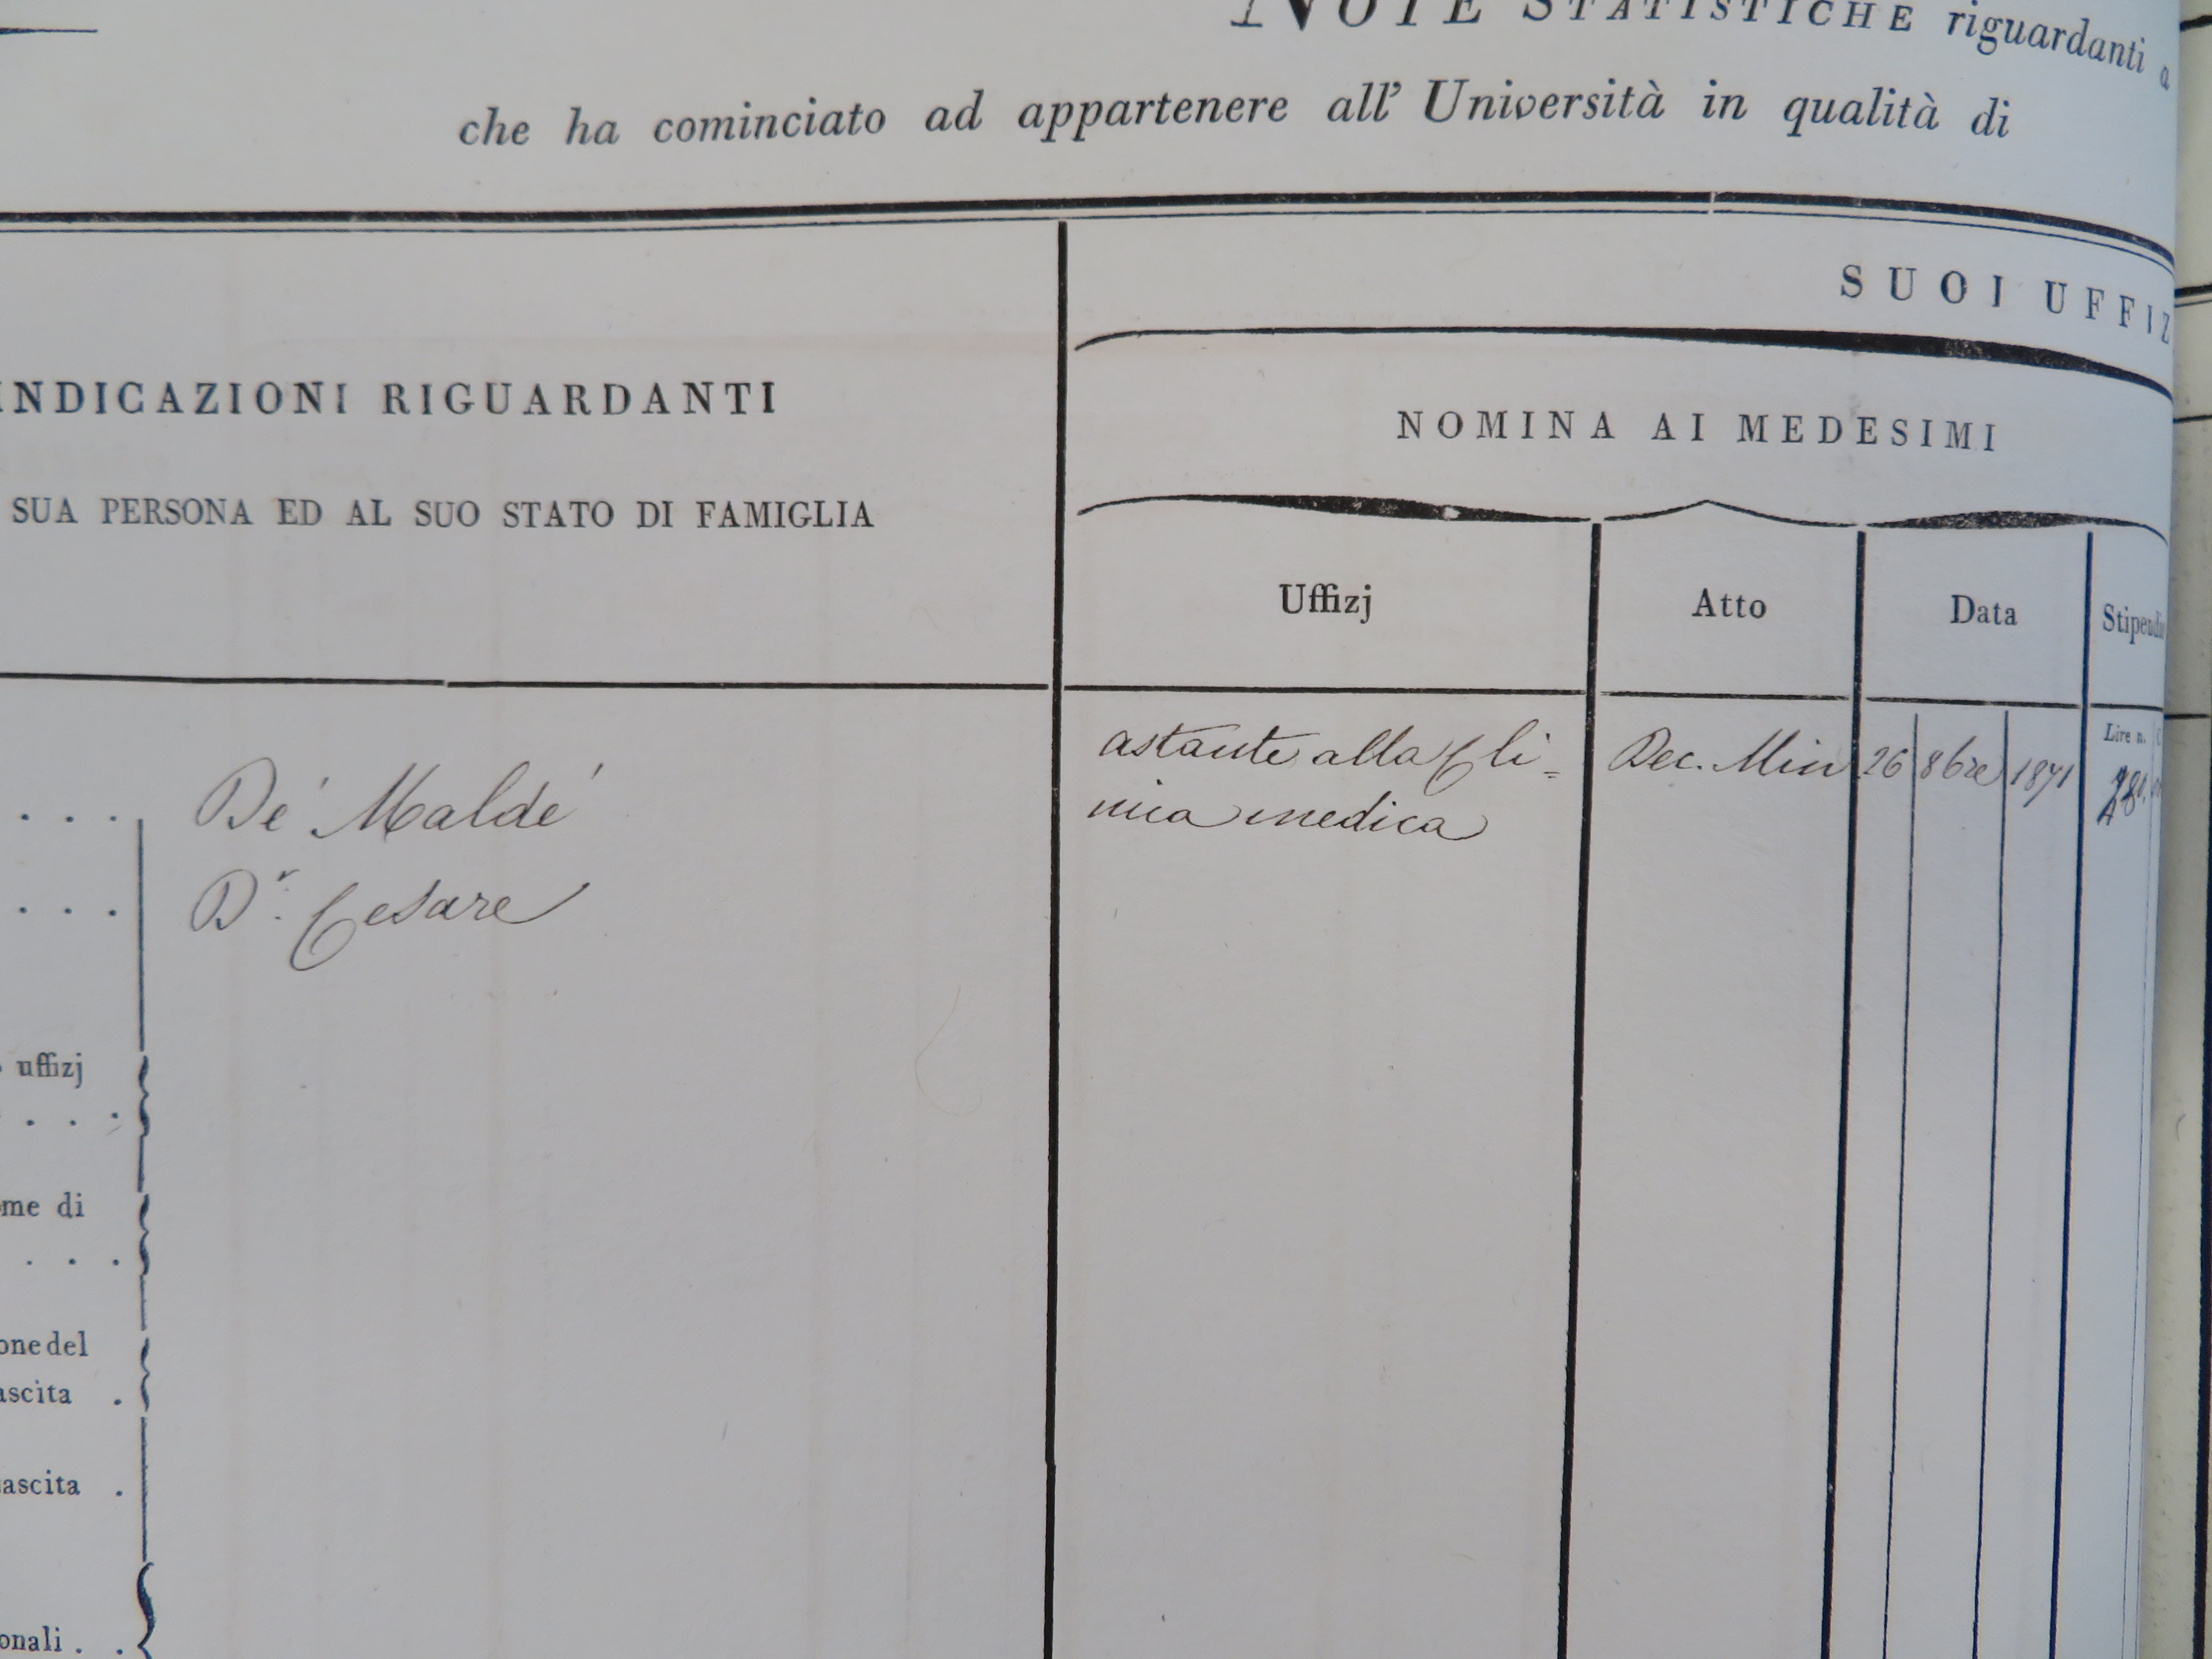 NOTE STATISTICHE riguardanti
che ha cominciato ad appartenere all' Università in qualità di
SUOI UFFIZ
INDICAZIONI RIGUARDANTI
NOMINA AI MEDESIMI
SUA PERSONA ED AL SUO STATO DI FAMIGLIA
Uffizj Atto Data Stipendi
Lire n.
astante alla Cli- Dec. Min 26 8bre 1871
nica medica
De' Maldé
Dr. Cesare
uffizj
me di
one del
ascita
ascita
onali